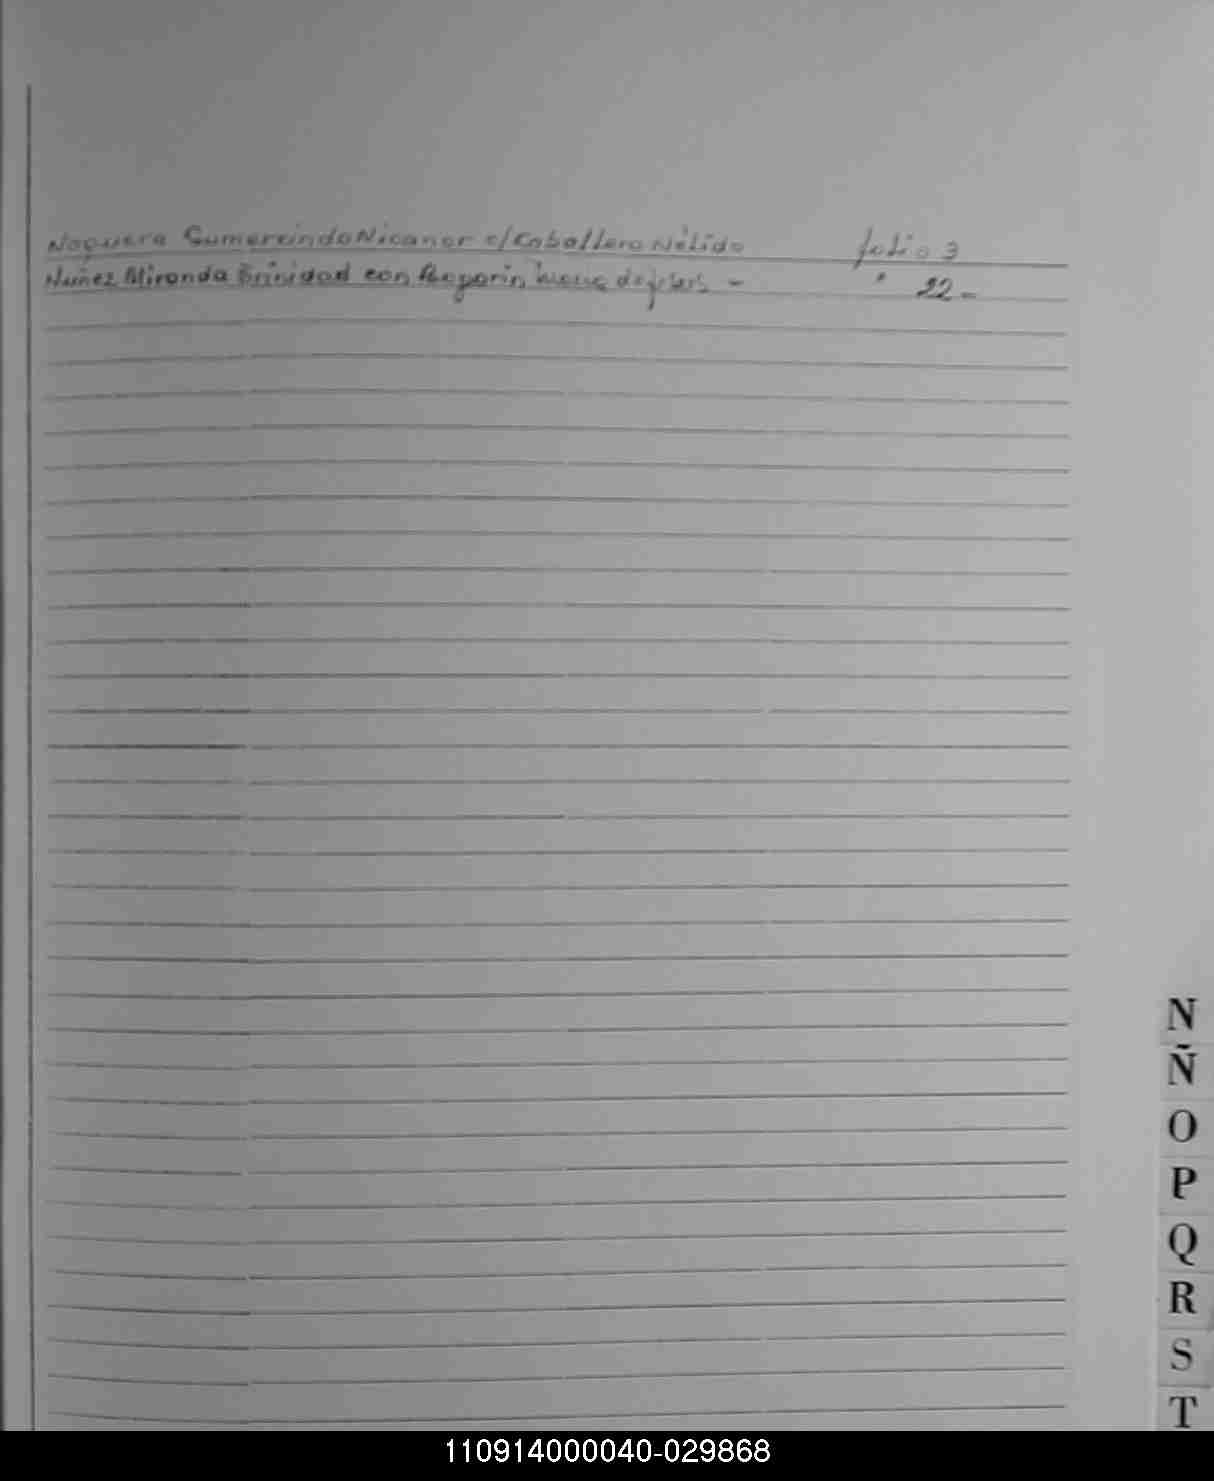 Noguera Gumercindo Nicanor c/ Caballero Nélida folio 3
Nuñez Miranda Trinidad con " 22-
N
Ñ
O
P
Q
R
S
T
110914000040-029868